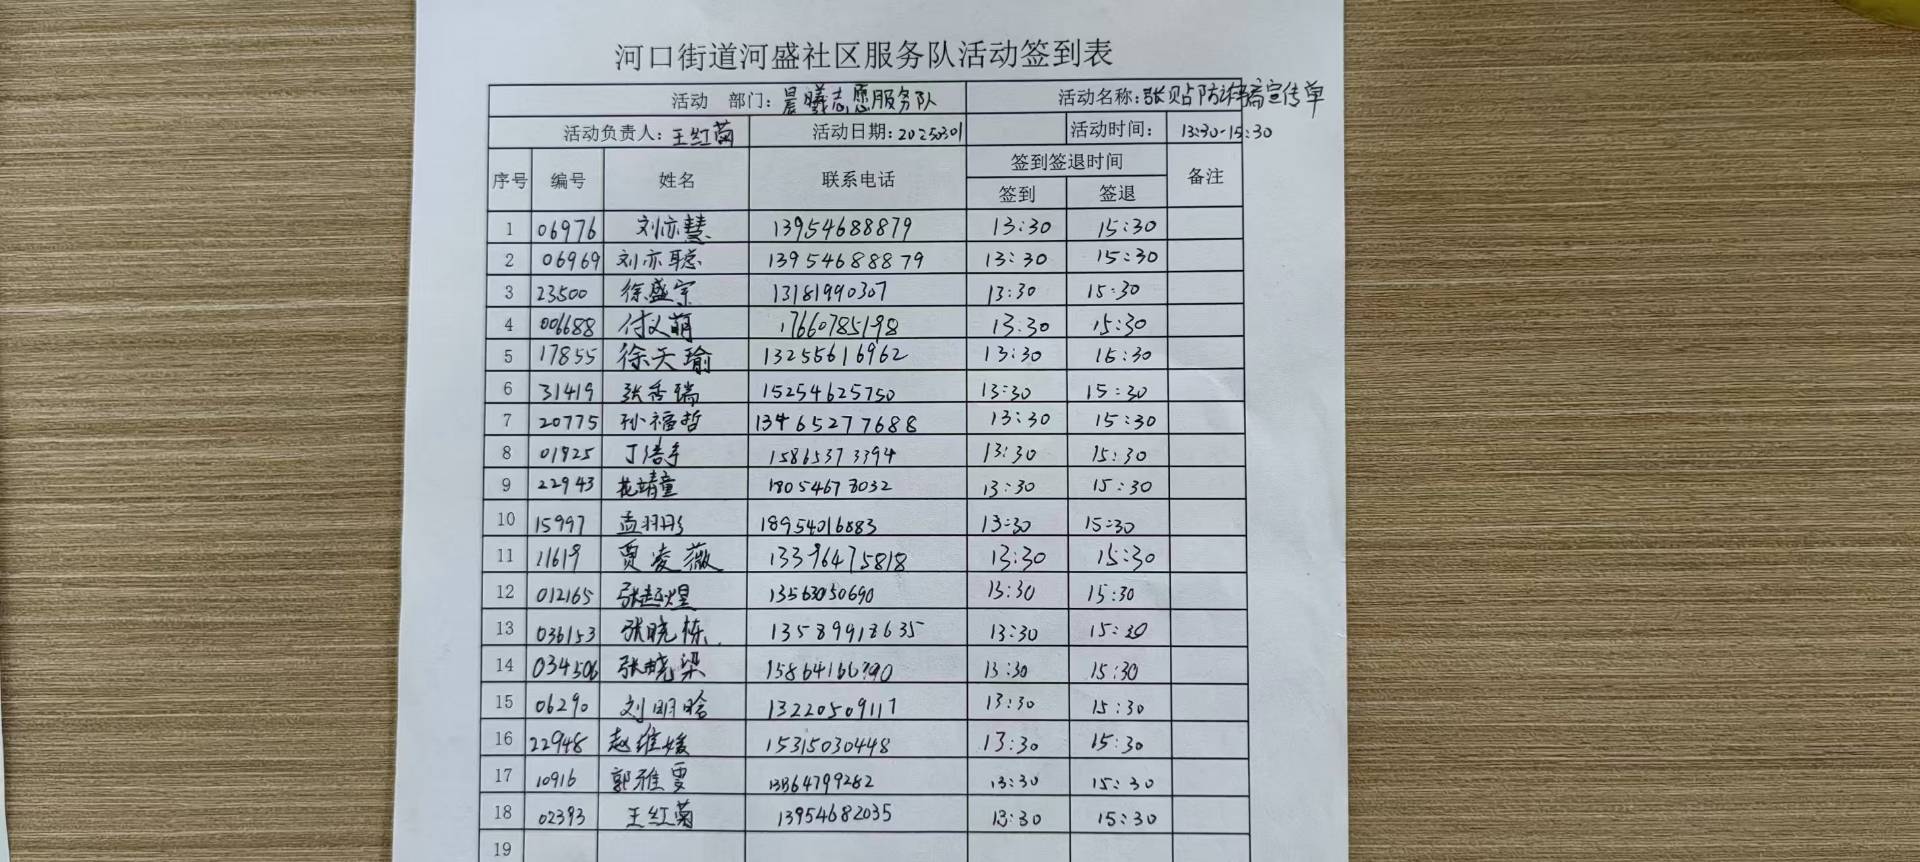 河口街道河盛社区服务队活动签到表
活动 部门：晨曦志愿服务队 活动名称：张贴防诈骗宣传单
活动负责人：王红菊 活动日期：20250301 活动时间： 13:30-15:30
序号 编号 姓名 联系电话 签到签退时间 备注
签到 签退
1 06976 刘亦慧 13954688879 13:30 15:30
2 06969 刘亦聪 13954688879 13:30 15:30
3 23500 徐盛宗 13181990307 13:30 15:30
4 006688 付义萌 17660785198 13:30 15:30
5 17855 徐天瑜 13255616962 13:30 15:30
6 31419 张香瑞 15254625750 13:30 15:30
7 20775 孙福哲 13465277688 13:30 15:30
8 01825 丁浩 15865373394 13:30 15:30
9 22943 花靖童 18054673032 13:30 15:30
10 15997 孟羽彤 18954016883 13:30 15:30
11 11619 贾凌薇 13396475818 13:30 15:30
12 012165 张赵煜 13563050690 13:30 15:30
13 036153 张晓栋 13589918635 13:30 15:30
14 034506 张晓梁 15864166790 13:30 15:30
15 06290 刘明晗 13220509117 13:30 15:30
16 22948 赵维媛 15315030448 13:30 15:30
17 10916 郭雅雯 13864799282 13:30 15:30
18 02393 王红菊 13954682035 13:30 15:30
19